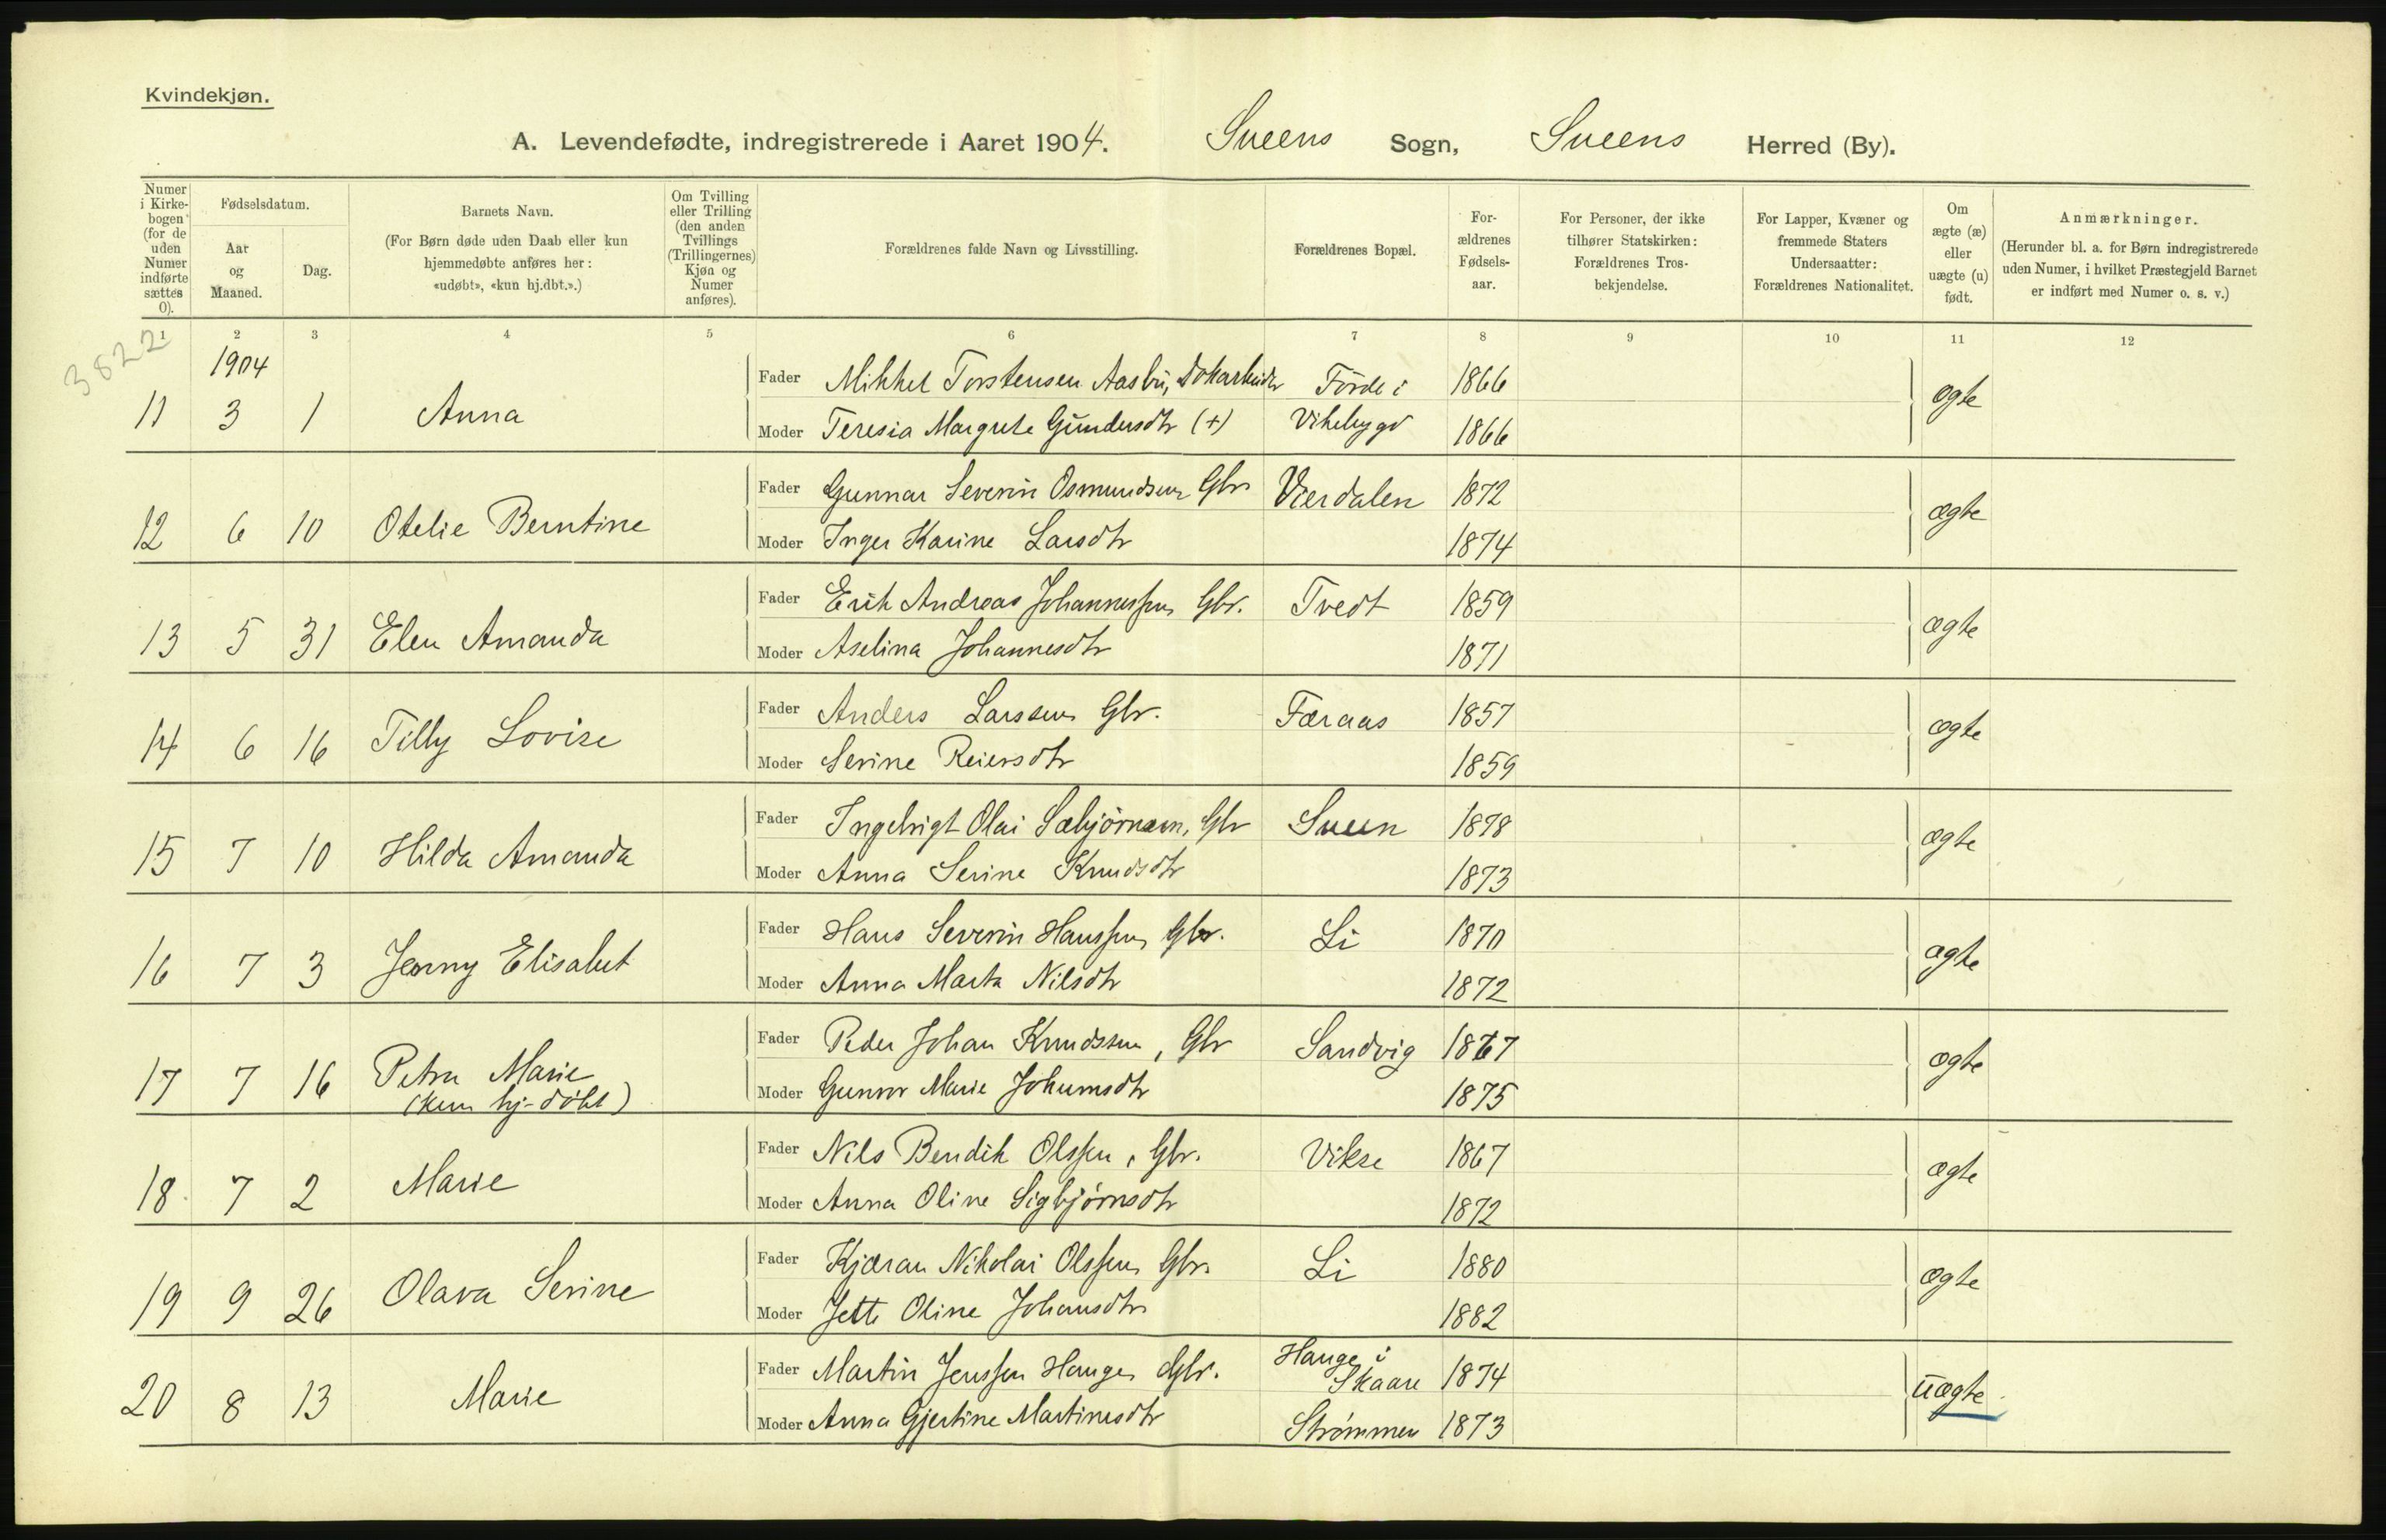 Kvindekjøn.
A. Levendefødte, indregistrerede i Aaret 1904. Sveens Sogn, Sveens Herred (By).
Numer i Kirkebogen (for de uden Numer indførte sættes 0).
Fødselsdatum.
Aar og Maaned.
Dag.
Barnets Navn.
(For Børn døde uden Daab eller kun hjemmedøbte anføres her: «udøbt», «kun hj.dbt.».)
Om Tvilling eller Trilling (den anden Tvillings (Trillingernes) Kjøn og Numer anføres).
Forældrenes fulde Navn og Livsstilling.
Forældrenes Bopæl.
Forældrenes Fødselsaar.
For Personer, der ikke tilhører Statskirken: Forældrenes Trosbekjendelse.
For Lapper, Kvæner og fremmede Staters Undersaatter: Forældrenes Nationalitet.
Om ægte (æ) eller uægte (u) født.
Anmærkninger.
(Herunder bl. a. for Børn indregistrerede uden Numer, i hvilket Præstegjeld Barnet er indført med Numer o. s. v.)
1 2 3 4 5 6 7 8 9 10 11 12
3822
1904
Fader Mikkel Torstensen Aasbü, Dokarbeider Förde i 1866
11 3 1 Anna ægte
Moder Teresia Margrete Gundersdtr (+) Vikebygd 1866
Fader Gunnar Severin Osmundsen Gbr Værdalen 1872
12 6 10 Otelie Berntine ægte
Moder Inger Karine Larsdtr 1874
Fader Erik Andreas Johannessen Gbr. Tvedt 1859
13 5 31 Elen Amanda ægte
Moder Aselina Johannesdtr 1871
Fader Anders Larssen Gbr. Færaas 1857
14 6 16 Tilly Lovise ægte
Moder Serine Reiersdtr 1859
Fader Ingebrigt Olai Sæbjörnsen, Gbr Sveen 1878
15 7 10 Hilda Amanda ægte
Moder Anna Serine Knudsdtr 1873
Fader Hans Severin Hanssen Gbr. Li 1870
16 7 3 Jenny Elisabet ægte
Moder Anna Marta Nilsdtr 1872
Fader Peder Johan Knudssen, Gbr Sandvig 1867
17 7 16 Petra Marie ægte
(kun hj-döbt)
Moder Gunvor Marie Johansdtr 1875
Fader Nils Bendik Olssen, Gbr. Vikse 1867
18 7 2 Marie ægte
Moder Anna Oline Sigbjörnsdtr 1872
Fader Kjæran Nikolai Olssen Gbr. Li 1880
19 9 26 Olava Serine ægte
Moder Jette Oline Johansdtr 1882
Fader Martin Jenssen Hauge, Gbr. Hauge i Skaare 1874
20 8 13 Marie üægte
Moder Anna Gjertine Martinesdtr Strömmen 1873